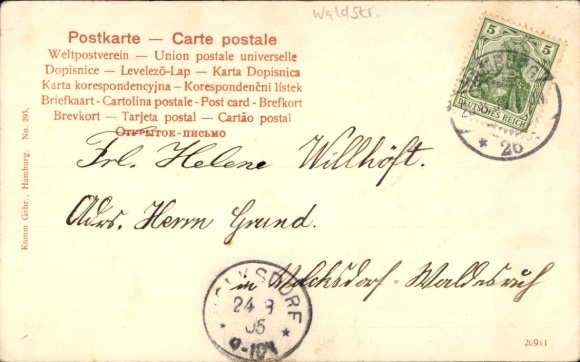 Waldstr.
Postkarte — Carte postale
Weltpostverein — Union postale universelle
Dopisnice — Levelező-Lap — Karta Dopisnica
Karta korespondencyjna — Korespondenční lístek
Briefkaart - Cartolina postale - Post card - Brefkort
Brevkort — Tarjeta postal — Cartão postal
Открытое письмо
5 5
DEUTSCHES REICH
* 26
Frl. Helene Willhöft.
Adrs. Herrn Grand.
in Volksdorf-Waldesruh
VOLKSDORF
24 8
06
9-10V
Kumm Gebr., Hamburg. No. 295.
20911